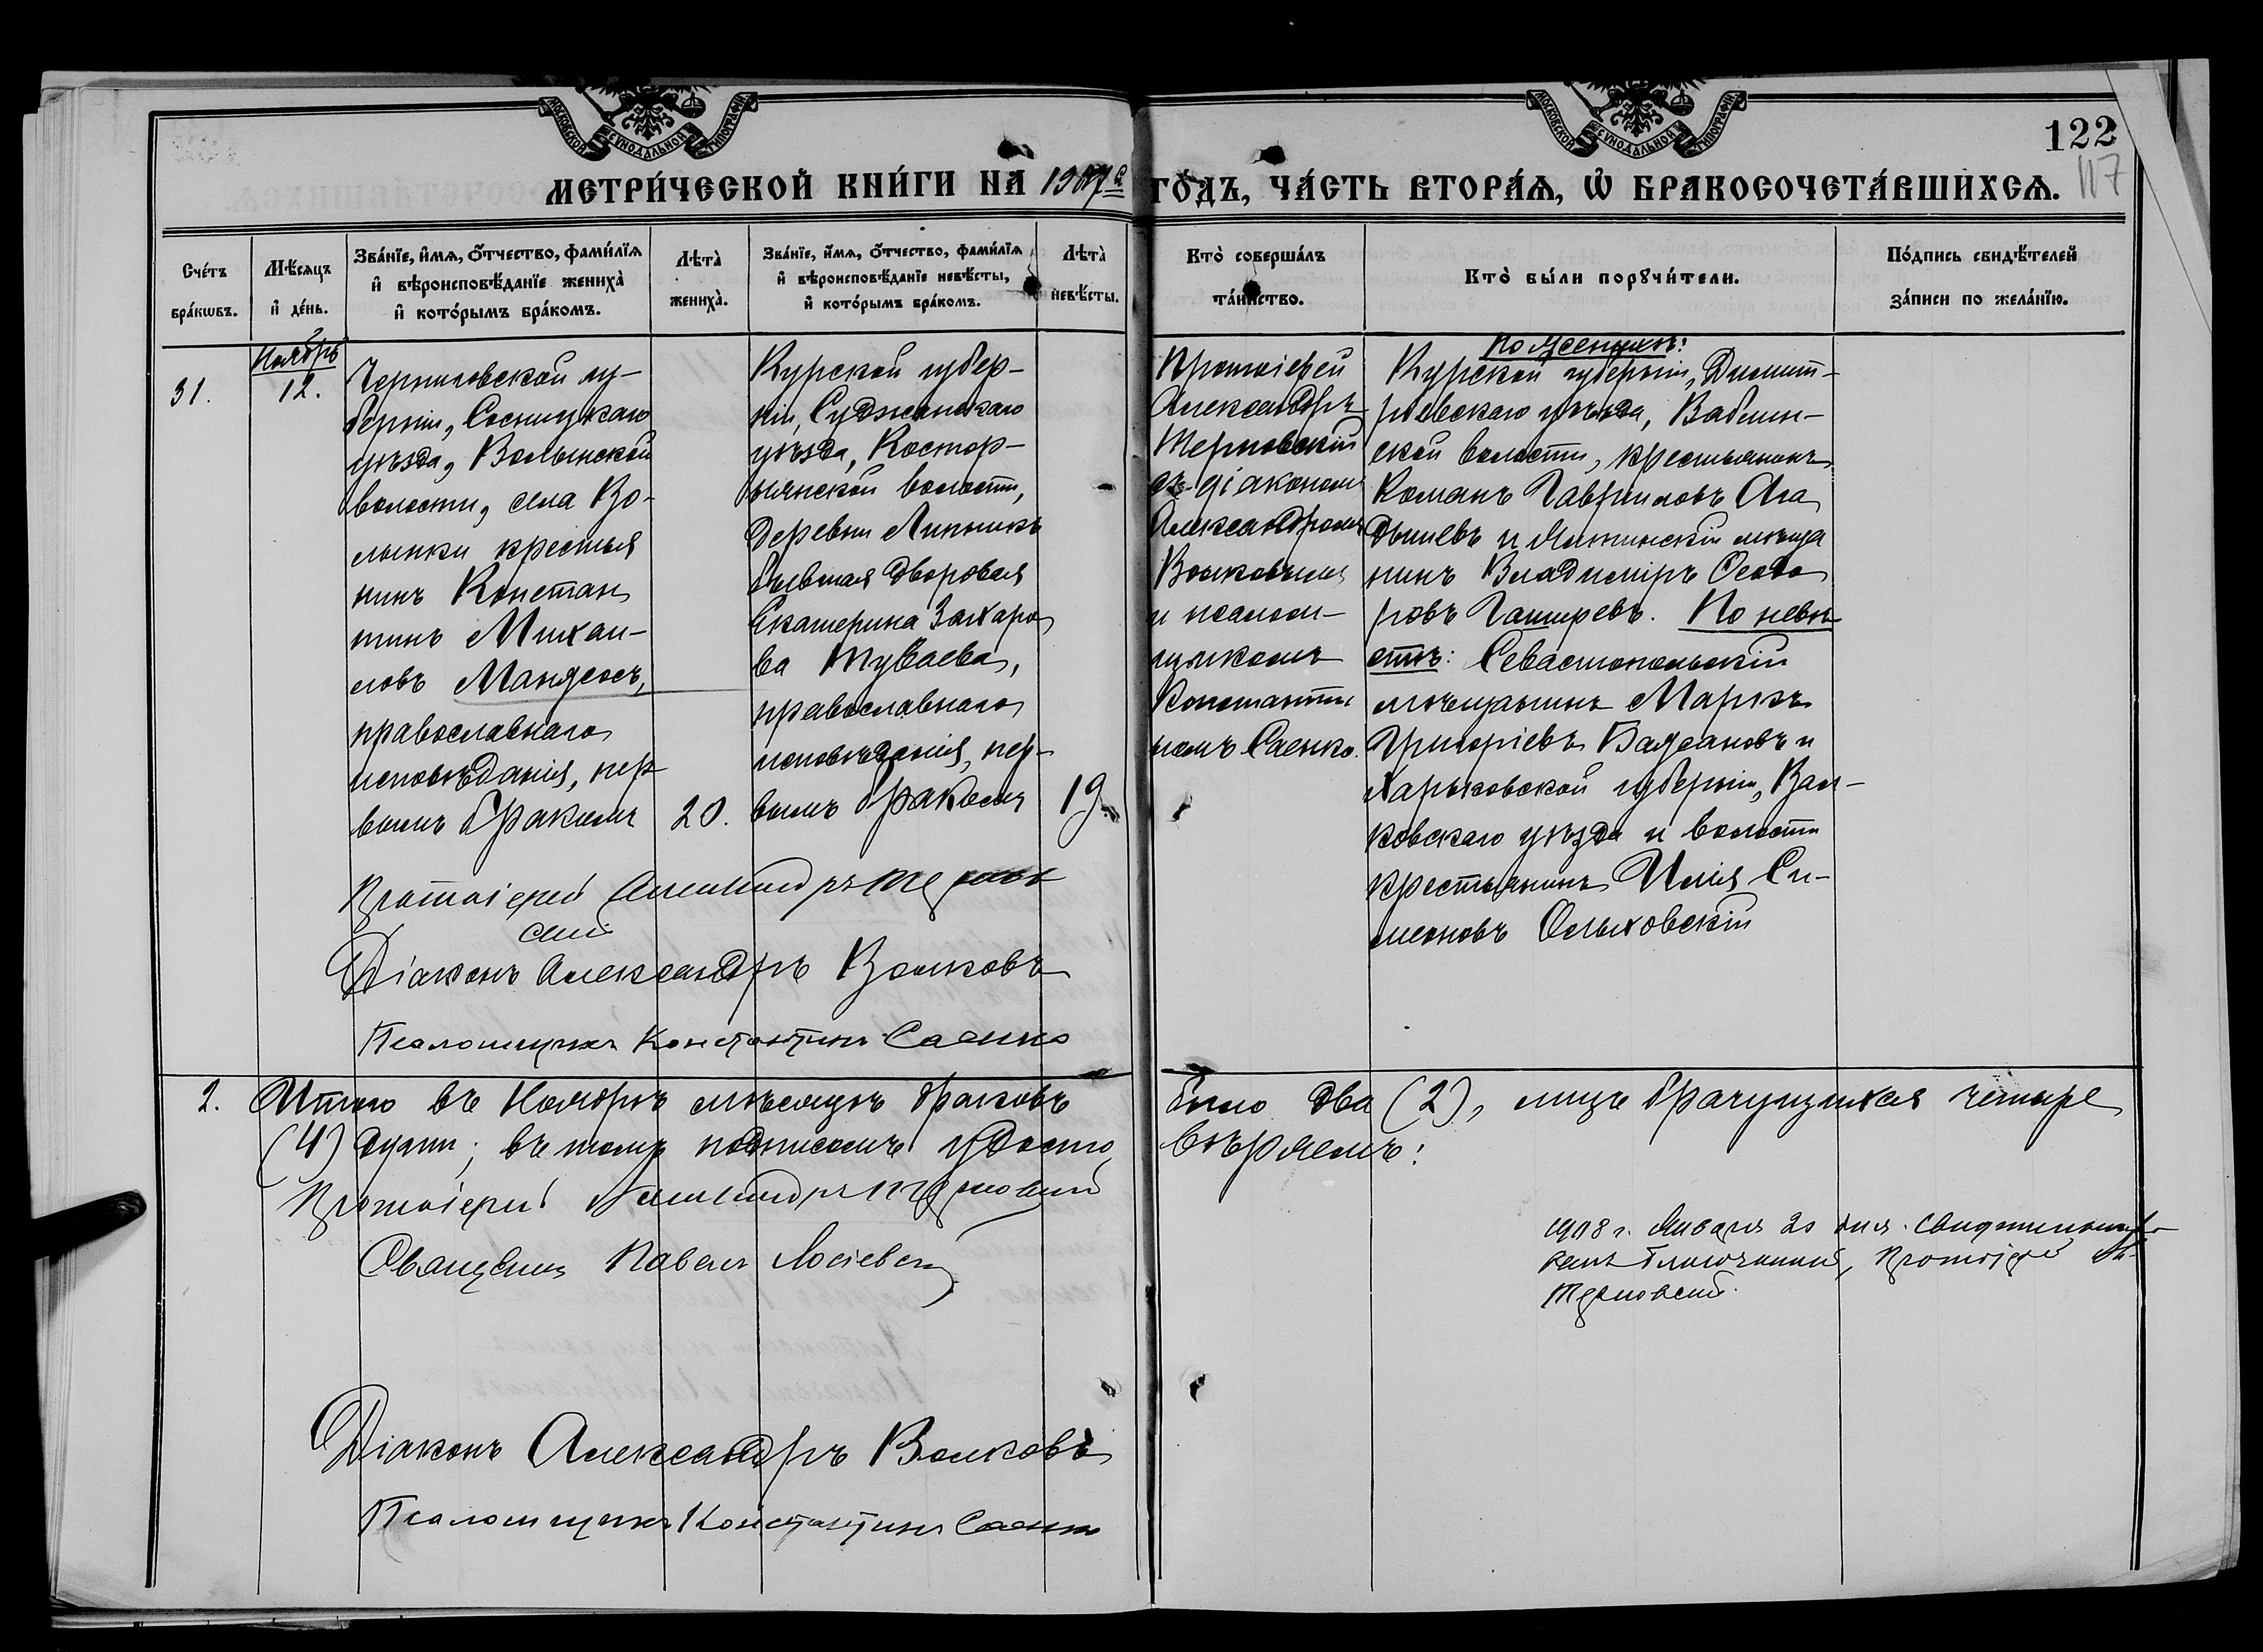 МОСКОВСКОЙ СУНОДАЛЬНОЙ ТИПОГРАФІИ
МОСКОВСКОЙ СУНОДАЛЬНОЙ ТИПОГРАФІИ
122
117
МЕТРИ́ЧЕСКОЙ КНИ́ГИ НА 1907й ГО́ДЪ, ЧА́СТЬ ВТОРА́Я, Ѡ БРАКОСОЧЕТА́ВШИХСЯ.
Сче́тъ бра́кѡвъ.
Мѣ́сяцъ и де́нь.
Зва́нїе, и́мя, о́тчество, фами́лїя и вѣроисповѣ́данїе жениха̀ и кото́рымъ бра́комъ.
Лѣта̀ жениха̀.
Зва́нїе, и́мя, о́тчество, фами́лїя и вѣроисповѣ́данїе невѣ́сты, и кото́рымъ бра́комъ.
Лѣта̀ невѣ́сты.
Кто̀ соверша́лъ та́инство.
Кто̀ бы́ли порꙋчи́тели.
По́дпись свидѣ́телей за́писи по жела́нїю.
31.
Ноябрь
12.
Черниговской гу-
берніи, Сосницкаго
уѣзда, Волынской
волости, села Во-
лынки крестья
нинъ Констан
тинъ Михаи-
ловъ Мандросъ,
православнаго
исповѣданія, пер
вымъ бракомъ
20.
Курской губер-
ніи, Суджанскаго
уѣзда, Костор-
нянской волости,
деревни Липникъ
бывшая дворовая
Екатерина Захаро
ва Туваева,
православнаго
исповѣданія, пер-
вымъ бракомъ
19.
Протоіерей
Александръ
Терновскій
съ діакономъ
Александромъ
Волковымъ
и псалом-
щикомъ
Константи
номъ Саенко.
По женихѣ:
Курской губерніи, Димит-
ріевскаго уѣзда, Ваблин-
ской волости, крестьянинъ
Романъ Гавриловъ Ага
Владиміръ Ѳедо
ровъ По невѣ
стѣ: Севастопольскій
мѣщанинъ Маркъ
Григоріевъ и
Харьковской губерніи, Вал-
ковскаго уѣзда и волости
крестьянинъ Илія Си-
меоновъ Ольховскій
Протоіерей Александръ Тернов
скій
Діаконъ Александръ Волковъ
Псаломщикъ Константинъ Саенко
2. Итого въ Ноябрѣ мѣсяцѣ браковъ было два (2), лицъ брачущихся четыре
(4) души; въ томъ подписомъ удосто вѣряемъ:
Протоіерей Александръ Терновскій
Священникъ Павелъ
1908 г. Января 20 дня.
Благочинный, Протоіерей Ал.
Терновскій.
Діаконъ Александръ Волковъ
Псаломщикъ Константинъ Саенко